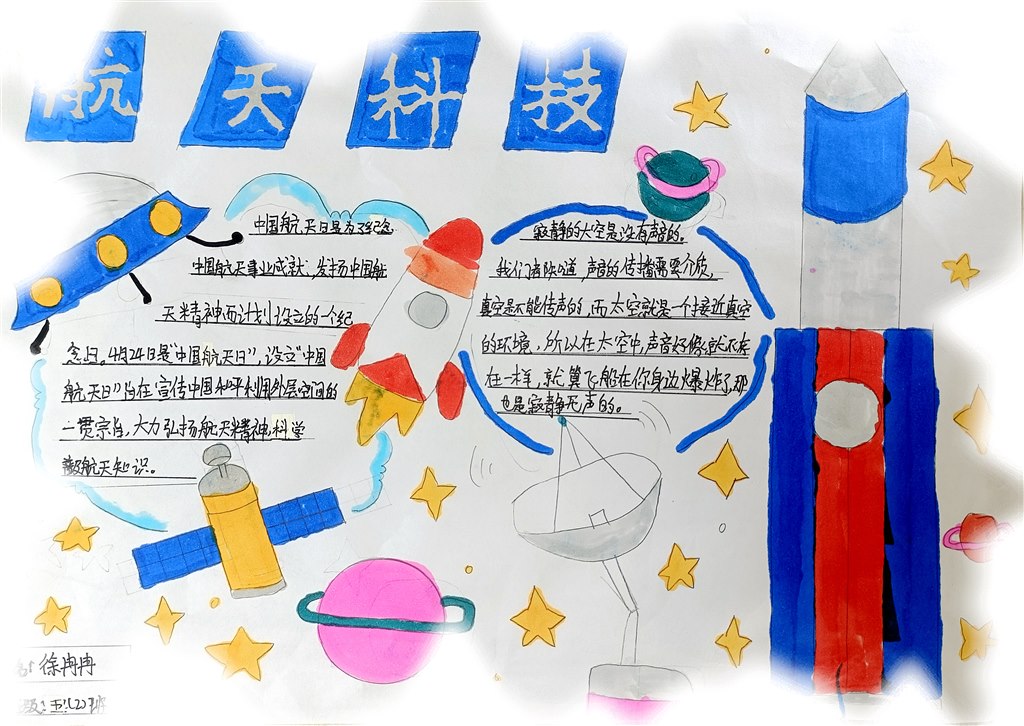 航天科技
中国航天日是为了纪念
中国航天事业成就、发扬中国航
天精神而计划设立的一个纪
念日。4月24日是“中国航天日”，设立“中国
航天日”旨在“宣传中国和平利用外层空间的
一贯宗旨，大力弘扬航天精神，科学
普及航天知识。
寂静的太空是没有声音的。
我们都知道，声音的传播需要介质，
真空是不能传声的，而太空就是一个接近真空
的环境，所以在太空中，声音好像就不存
在一样，就算飞船在你身边爆炸了，那
也是寂静无声的。
徐冉冉
五（2）班